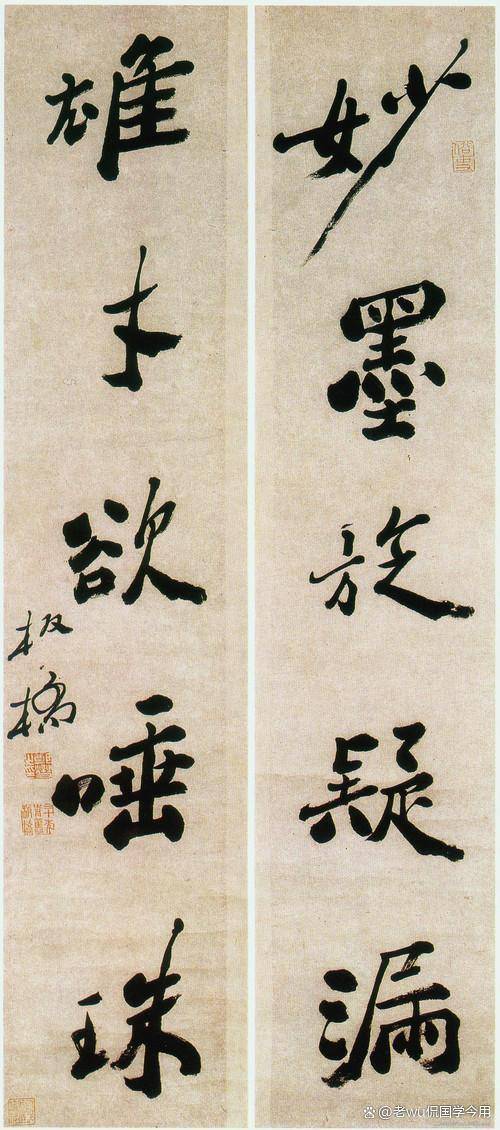 妙墨旋疑漏
雄才欲唾珠
板橋
@老wu侃国学今用